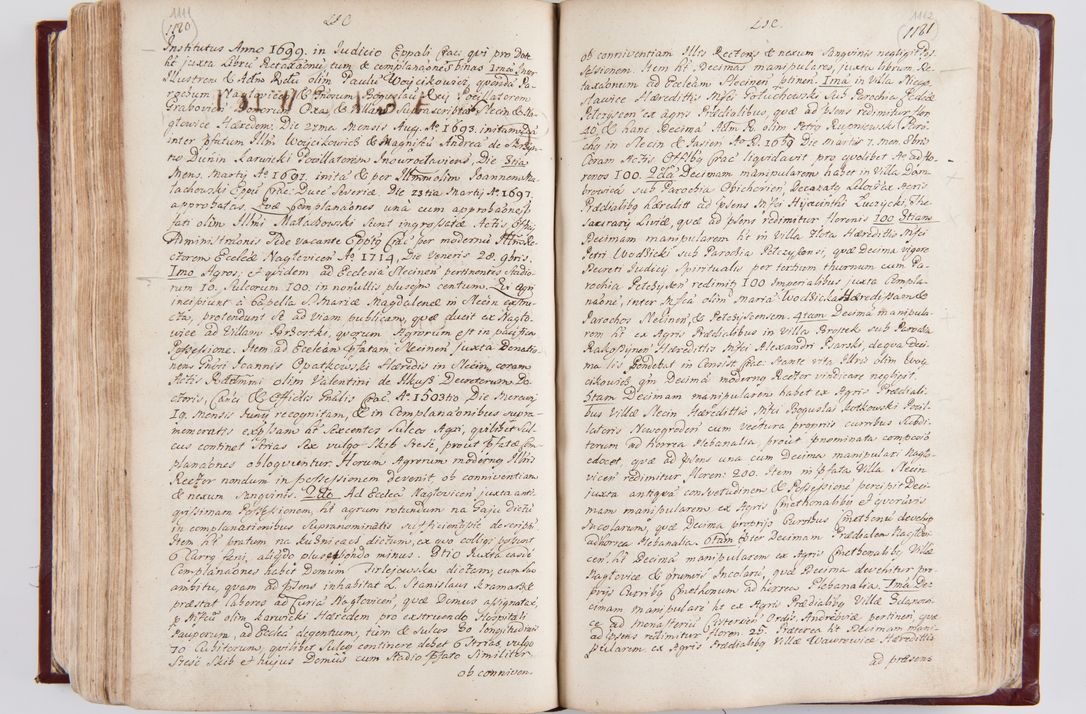 1111
1180
LSC
Institutus Anno 1699. in Judicio Eppali Crac. qui pro Dote
ht juxta Libru Retaxaonu, tum & complanaones binas Ima Inter
Illustrem & Adm Rdu olim Paulu Woycikowicz, quonda Pa-
rochum Naglovicen & Gnosum Boguslau Rey
Grabovien Bonorum Oxa, & Villaru Subtascriptaru Slecin & Na-
glowice Hæredem. Die 22ma Mensis Aug. Ao 1693. initam
inter pfatum Illm Woycikowicz & Magnificu Andrea de
no Dunin Karwicki Inowrodaviens, Die 8tia
Mens. Martij Ao 1697. inita & per olim Joannem Ma-
lachowski Eppu Crac. Duce Severiæ. Die 23tia Martij Ao 1697
approbatas. Quæ Complanaones una cum approbaone
fati olim Illmi Malachowski Sunt ingrossatæ Actis Offij
Administraonis Sede vacante Epptg Crac per modernu
ctorem Ecclæ Naglovicen Ao 1714, Die Veneris 28. 9bris.
Imo Agros, et quidem ad Ecclesia Slecinen pertinentes Stadio-
rum 10. Sulcorum 100. in nonnullis plusqm centum. Qi agri
incipiunt a Capella S. Mariæ Magdalenæ in Slecin extru-
cta, protendunt se ad viam publicam, quæ ducit ex Naglo-
wice ad Villam quorum Agrorum est in pacifica
Possessione. Item ad Ecclean pfatam Slecinen juxta Donatio-
nem Gnosi Joannis Opatkowski Hæredis in Slecin, coram
Actis olim Valentini de Ilkusz Decretorum Do-
ctoris, Canci & Officilis Gnalis Crac. Ao 1503tio Die Mercurij
19. Mensis Junij recognitam, & in Complanaonibus supra-
nemeratis expllans ht Sexcentos Sulcos Agri, quilibet Sul-
cus continet Strias Sex vulgo Skib Szesc, prout pfatæ Com
planaones obloquuntur. Horum Agrorum moderng Illris
Rector nondum in possessionem devenit ob conniventiam
& nexum Sangvinis. 2do. Ad Eccleã Naglovicen juxta anti-
quissimam Possessionem, ht agrum rotundum na Gaju dictu
in complanationibus Supranominatis sufficientissime descriptu
Item ht pratum na Kuźnicach dictum, ex quo colligi possunt
6 Curry fæni, aliqdo plus qndo minus. Itio Juxta easde
Complanaones habet Domum Sirlejowska dictam, cum suo
ambitu, quam ad psens inhabitat L. Stanislaus Kramarz &
præstat labores ad Curia Naglovicen, quæ Domus assignatæ
p Mfcu olim Karwicki Hæredem pro extruendo Hospitali
Pauperum, ad Eccleã degentum, tum & Sulcos 30 longitudinis
70 Cubitorum, quilibet Sulcg continere debet 6 Strias vulgo
Szesc Skib et hujus Domus cum Stadio pfato Similiter
ob conniven-
LSC
1112
1181
ob conniventiam Illris Rectoris & nexum Sangvinis negligit Pos
Sessionem. Item ht Decimas manipulares, juxta librum Re-
taxaonum ad Ecclean Slecinen ptinen. Ima in Villa Niego-
slawice Hæredittis Mfci Poluchowski Sub Parochia Ecclæ
Pelczyscen ex agris Prædialibus, quæ ad psens redimitur flor
40. & hanc Decima Adm R. olim Petrg Krupniewski Paro-
chg in Slecin & Sasien Ao D. 1639 Die Martis 7. men. Ebris
Coram Actis Offilibg Crac liquidavit pro quolibet Ao ad flo-
renos 100. 2da Decimam manipularem habet in Villa Dom-
browica sub Parochia Obichovien, Decazato ex Agris
Prædialibg hæreditt ad psens Mfci Hijacinthi Zuczycki, The-
saurarij Livia, quæ ad psens redimitur florenis 100. 3tiam
Decimam manipularem ht in Villa Zlota Hæredittis Mfci
Petri Wodzicki sub Parochia Pelczyscensi, quæ Decima vigore
Decreti Judicij Spiritualis per tertium thurnum cum Pa-
rochia Pelczyscen redimitr 100 Imperialibus juxta Compla-
naone, inter Mfica olim Maria Wodzicka Hæredissam &
Parochos Slecinen & Pelczyscensem. 4tam Decima manipula-
rem ht ex Agris Prædialibus in Villa Brzostek sub Parochia
Rakoszynen Hæredittis Mfci Alexandri Psarski, de qua Deci-
ma lis pendebat in Consist. Crac. Stante vita Illris olim Woy-
cikowicz qm Decima moderng Rector vindicare negligit.
5tam Decimam manipularem habet ex Agris Prædiali-
bus Villæ Slecin Hæredittis Mfci Boguslai Jzotkowski Pocil-
latoris Nowogroden cum Vectura propriis curribus Subdi-
torum ad horrea Plebanalia, prout pnominata composo
edocet, quæ ad psens una cum Decima manipulari Naglo-
vicen redimitur Floren: 200. Item in pfata Villa Slecin
juxta antiqva consvetudinem & Possessione percipit Deci-
mam manipularem ex Agris Cmethonalibg et quorũvis
Incolarum, quæ Decima proprijs Curribus Cmethonu devehitr
ad horrea Plebanalia. 6tam Præter Decimam Prædialem Naglov-
cen. ht Decima manipularem ex Agris Cmethonalibg Villæ
Naglovice & qrumvis Incolaru, quæ Decima devehitur pro-
prijs Curribg Cmethonum ad horrea Plebanalia. Ima De-
cimam manipulare ht ex Agris Prædialibg Villæ Zdanowi-
ce ad Monasteriu Cisterciens Ordis. Andrzeoviæ pertinen, quæ
ad psens redimitur Floren. 25. Præterea ht Decimam mani-
pularem ex Agris Prædialibg Villæ Wawrowice Hæredittis
ad præsens